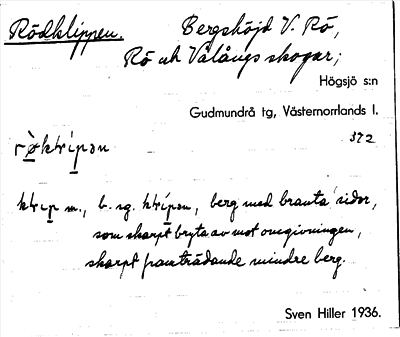 Rödklippen.
Bergshöjd V. Rö,
Rö och Vålångs skogar;
Högsjö s:n
Gudmundrå tg, Västernorrlands l.
372
klɩp m., b. sg. klɩ́pən, berg med branta sidor,
som skarpt bryta av mot omgivningen,
skarpt framträdande mindre berg.
Sven Hiller 1936.